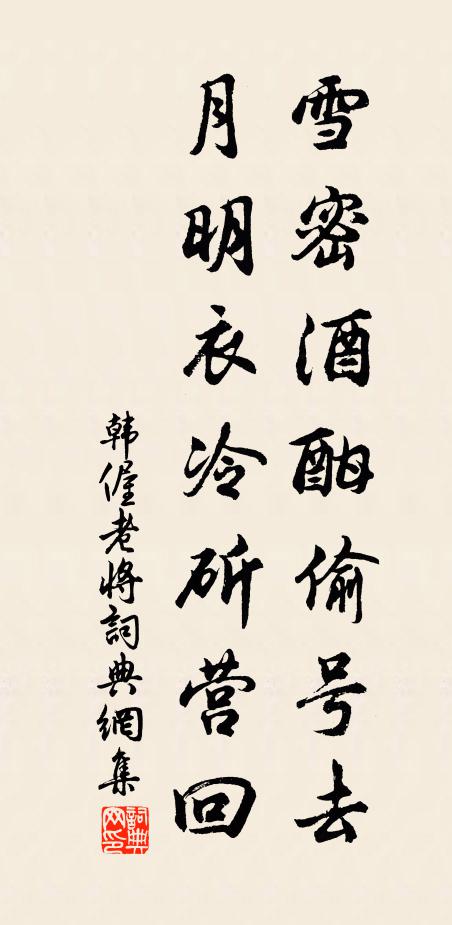 雪密酒酣偷号去
月明衣冷斫营回
韩偓老将詞典網集
詞典网印